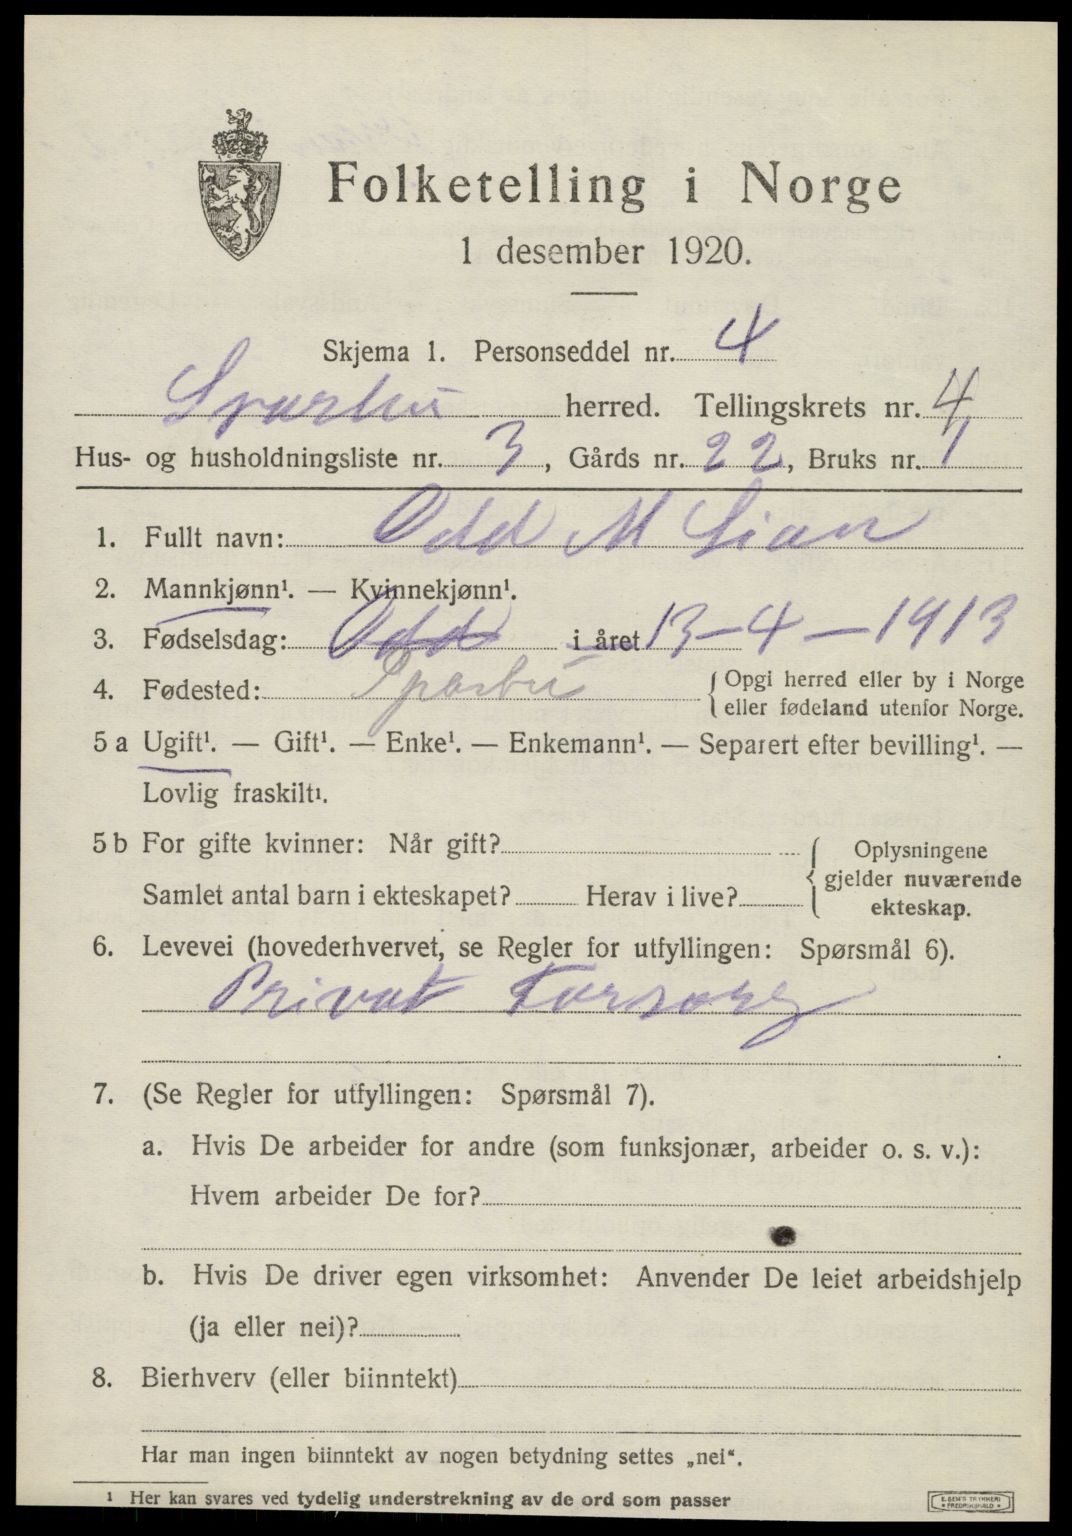 Folketelling i Norge
1 desember 1920.
Skjema 1. Personseddel nr. 4
Sparbu herred. Tellingskrets nr. 4
Hus- og husholdningsliste nr. 3, Gårds nr. 22, Bruks nr. 1
1. Fullt navn: Odd M Lian
2. Mannkjønn¹. — Kvinnekjønn¹.
3. Fødselsdag: Odd i året 13-4-1913
4. Fødested: Sparbu { Opgi herred eller by i Norge
eller fødeland utenfor Norge.
5 a Ugift¹. — Gift¹. — Enke¹. — Enkemann¹. — Separert efter bevilling¹. —
Lovlig fraskilt¹.
5 b For gifte kvinner: Når gift? { Oplysningene
gjelder nuværende
ekteskap.
Samlet antal barn i ekteskapet? Herav i live?
6. Levevei (hovederhvervet, se Regler for utfyllingen: Spørsmål 6).
Privat Forsørg
7. (Se Regler for utfyllingen: Spørsmål 7).
a. Hvis De arbeider for andre (som funksjonær, arbeider o. s. v.):
Hvem arbeider De for?
b. Hvis De driver egen virksomhet: Anvender De leiet arbeidshjelp
(ja eller nei)?
8. Bierhverv (eller biinntekt)
Har man ingen biinntekt av nogen betydning settes „nei“.
¹ Her kan svares ved tydelig understrekning av de ord som passer
E. SEM'S TRYKKERI
FREDRIKSHALD